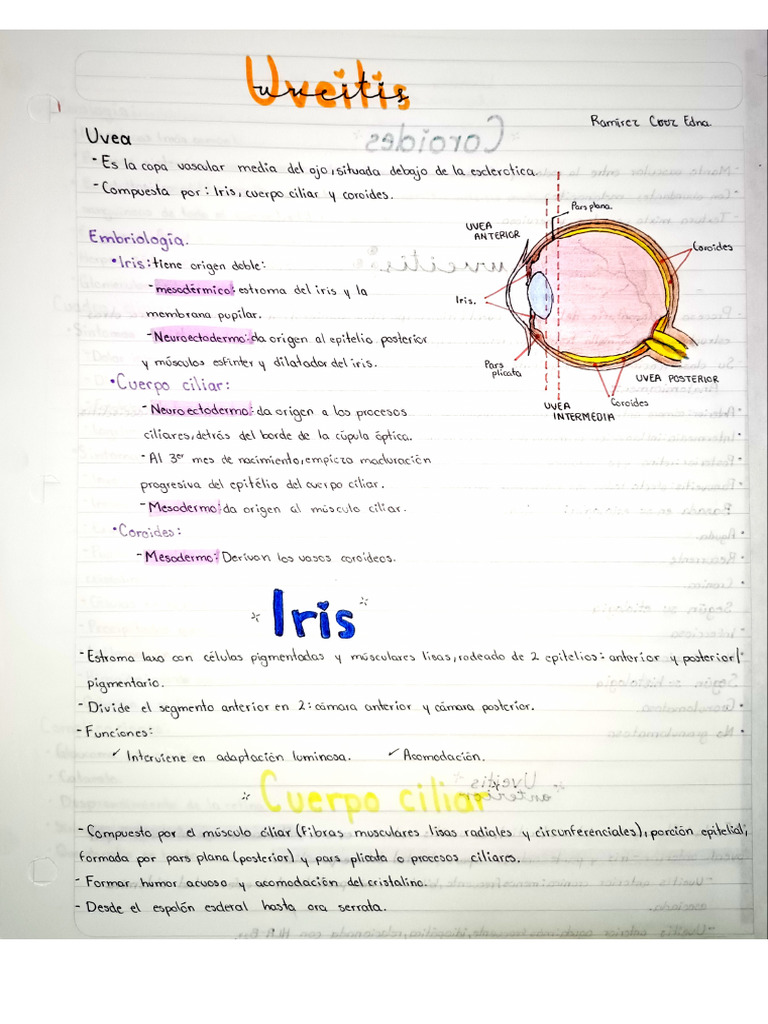 Uveitis
uveitis
Ramírez Cruz Edna.
Uvea
- Es la capa vascular media del ojo, situada debajo de la esclerotica.
- Compuesta por: Iris, cuerpo ciliar y coroides.
Embriología.
• Iris: tiene origen doble:
- mesodérmico: estroma del iris y la
membrana pupilar.
- Neuroectodermo: da origen al epitelio posterior
y músculos esfinter y dilatador del iris.
• Cuerpo ciliar:
- Neuroectodermo: da origen a los procesos
ciliares, detrás del borde de la cúpula óptica.
- Al 3er mes de nacimiento, empieza maduración
progresiva del epitélio del cuerpo ciliar.
- Mesodermo: da origen al músculo ciliar.
• Coroides:
- Mesodermo: Derivan los vasos coroideos.
Pars plana.
UVEA
ANTERIOR
Coroides
Iris.
Pars
plicata
UVEA POSTERIOR
Coroides
UVEA
INTERMEDIA
Iris
- Estroma laxo con células pigmentadas y músculares lisas, rodeado de 2 epitelios: anterior y posterior/
pigmentario.
- Divide el segmento anterior en 2: cámara anterior y cámara posterior.
- Funciones:
✓ Interviene en adaptación luminosa. ✓ Acomodación.
Cuerpo ciliar
- Compuesto por el músculo ciliar (Fibras musculares lisas radiales y circunferenciales), porción epitelial,
formada por pars plana (posterior) y pars plicata o procesos ciliares.
- Formar humor acuoso y acomodación del cristalino.
- Desde el espolón escleral hasta ora serrata.